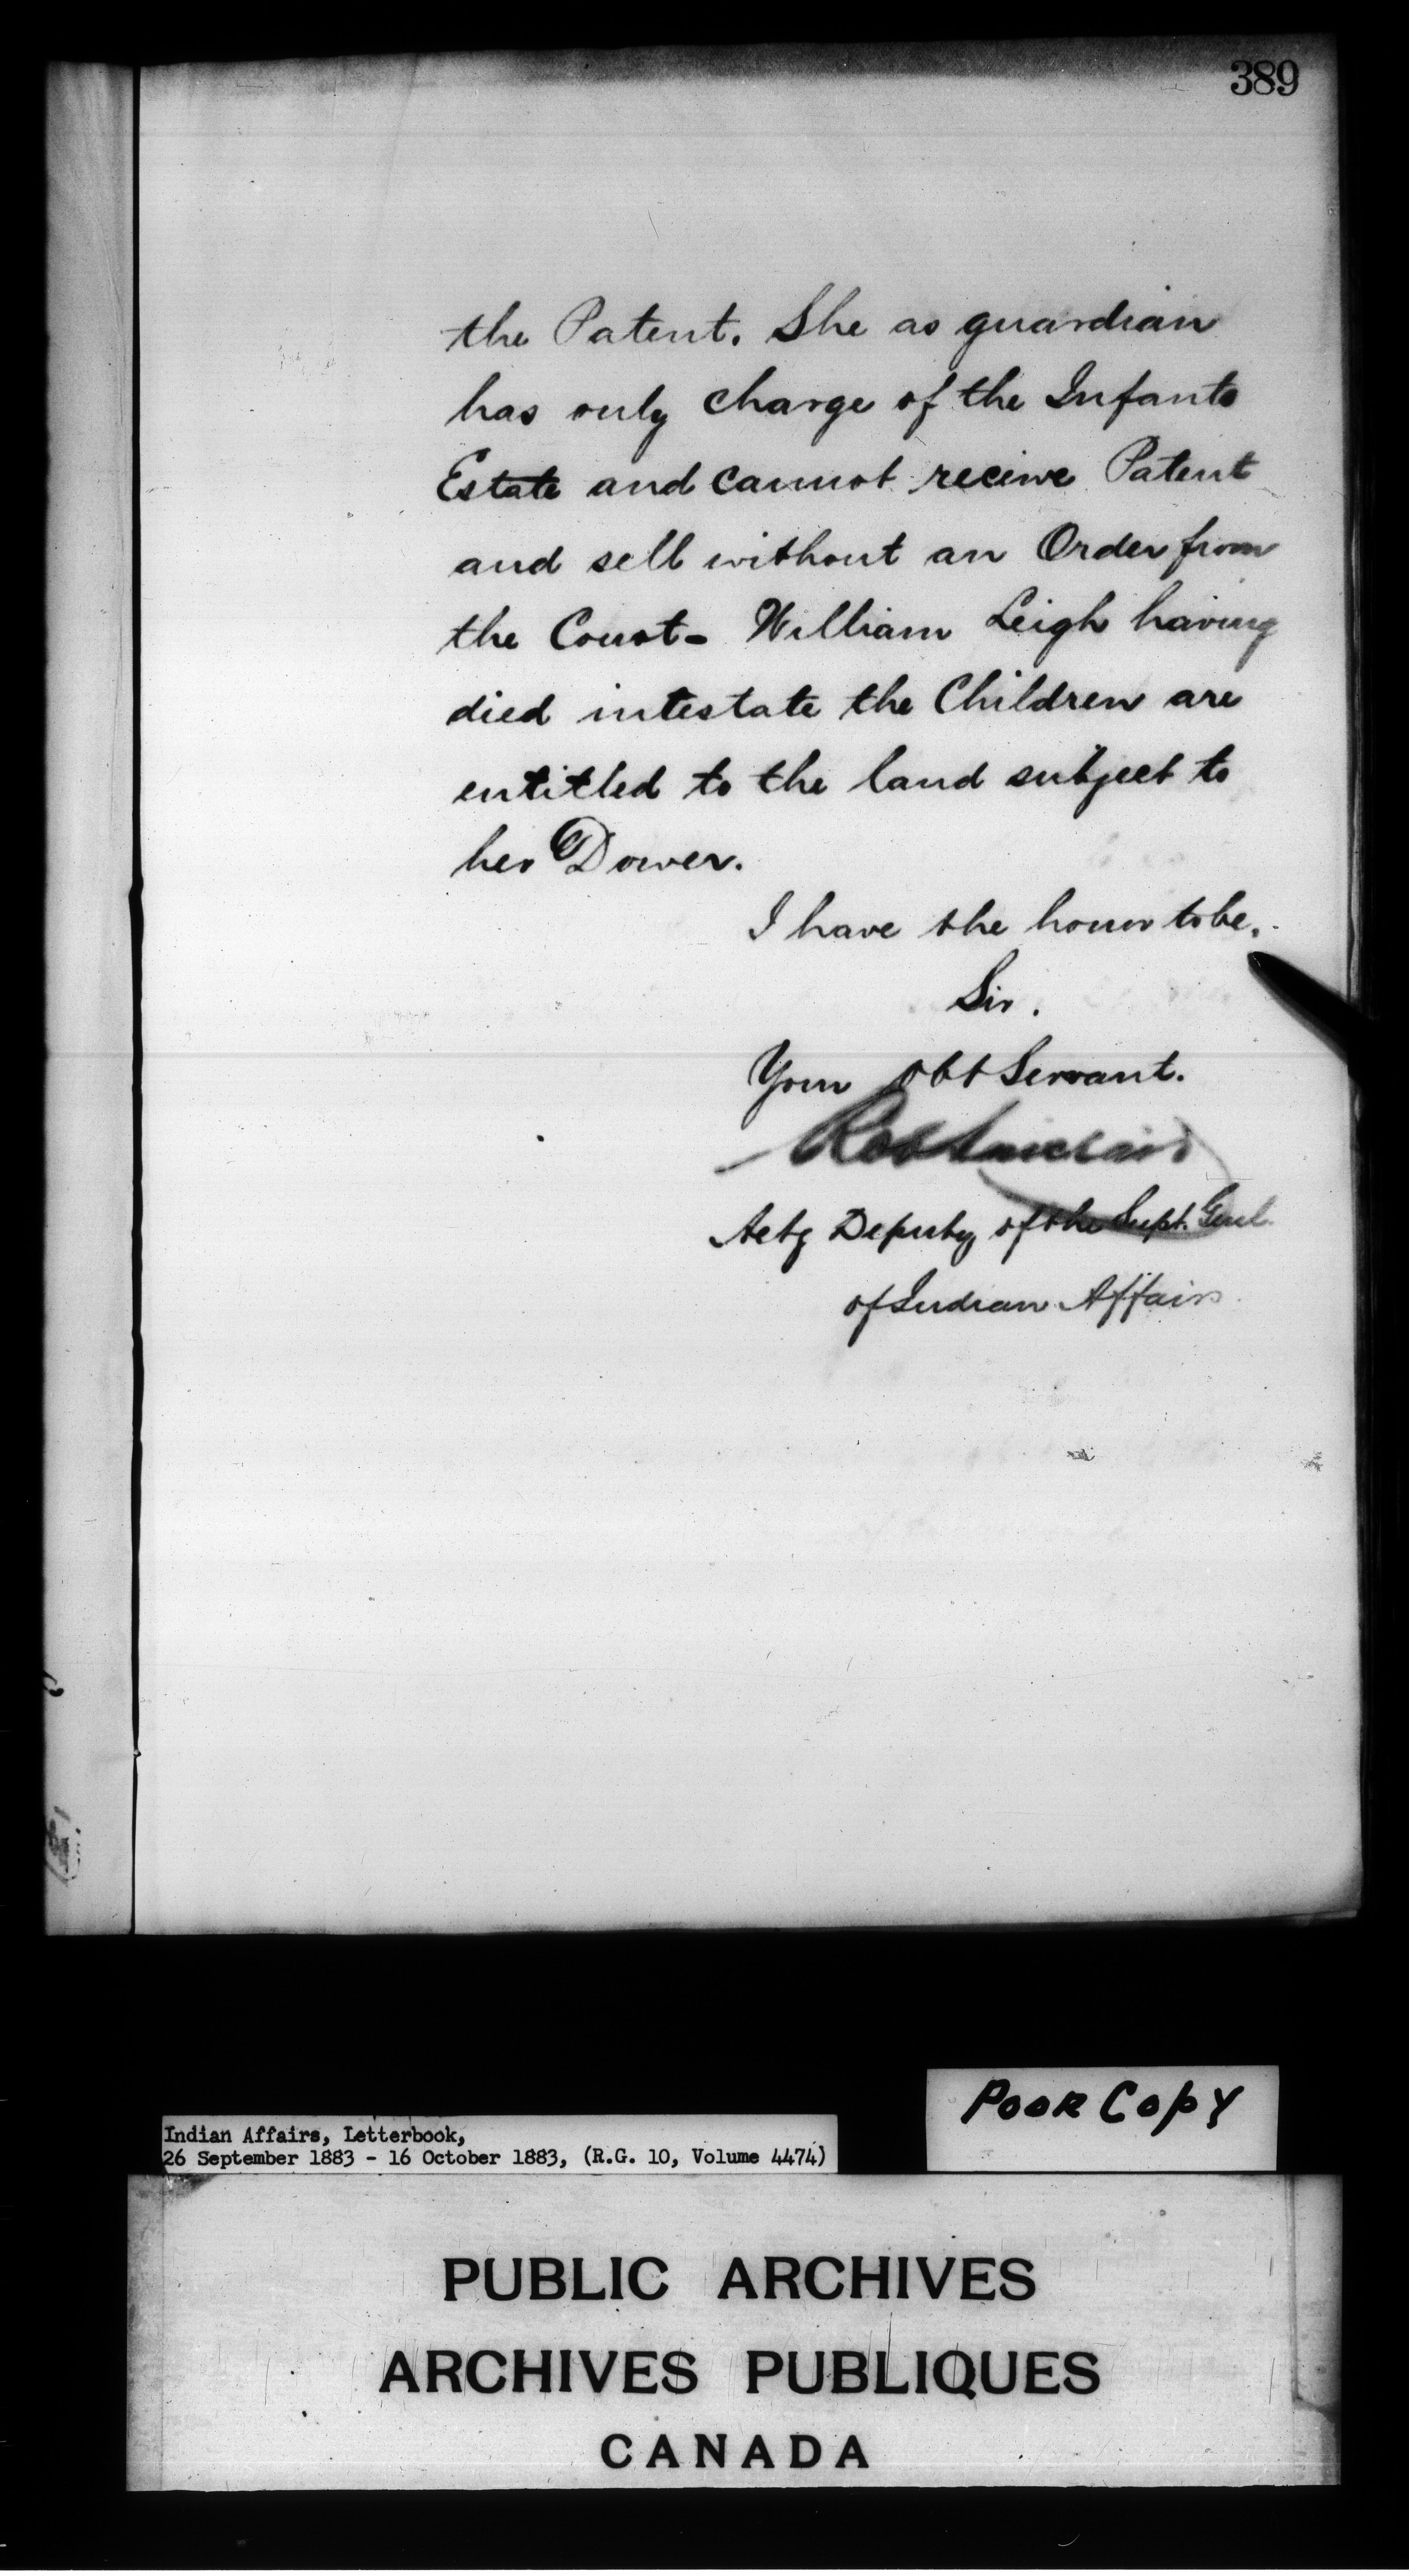 389
the Patent. She as guardian
has only charge of the Infants
Estate and cannot receive Patent
and sell without an Order from
the Court - William Leigh having
died intestate the Children are
entitled to the land subject to
her Dower.
I have the honor to be,
Sir.
Your Obt Servant.
Rob Sinclair
Actg Deputy of the Supt. Genl.
of Indian Affairs.
Poor Copy
Indian Affairs, Letterbook,
26 September 1883 - 16 October 1883, (R.G. 10, Volume 4474)
PUBLIC ARCHIVES
ARCHIVES PUBLIQUES
CANADA